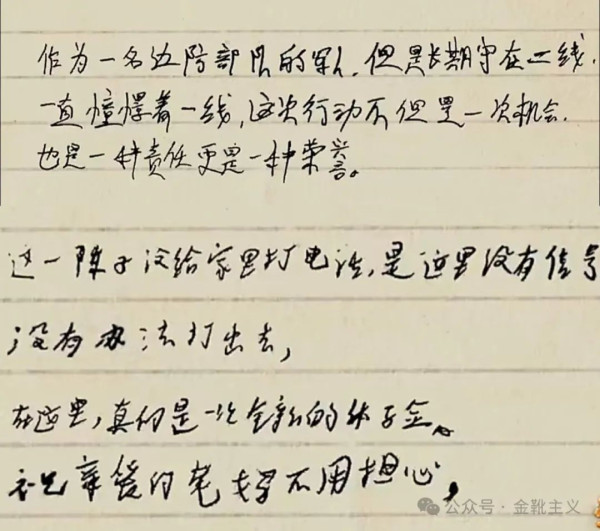 作为一名边防部队的军人,但是长期守在二线.
一直憧憬着一线,这次行动不但是一次机会.
也是一种责任更是一种荣誉。
这一阵子没给家里打电话,是这里没有信号
没有办法打出去,
在这里,真的是一次全新的体验。
不用担心,
公众号·金靴主义